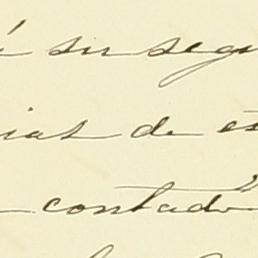 á su segu
cias de es
contado